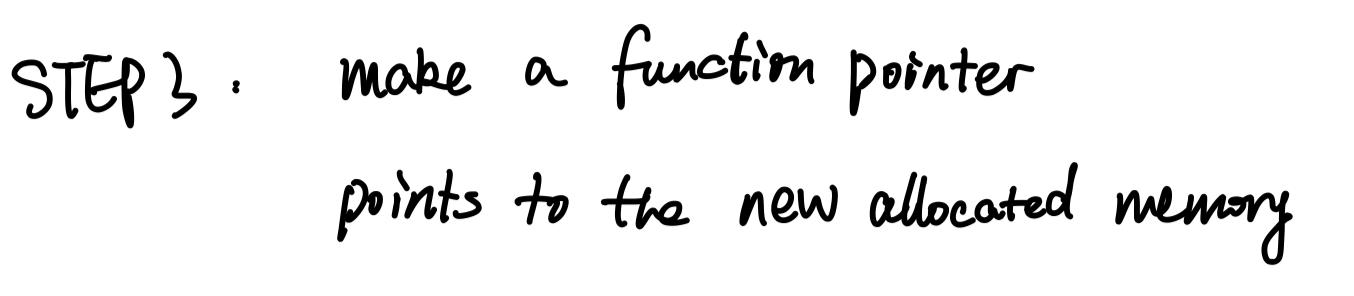 STEP 3: make a function pointer
points to the new allocated memory